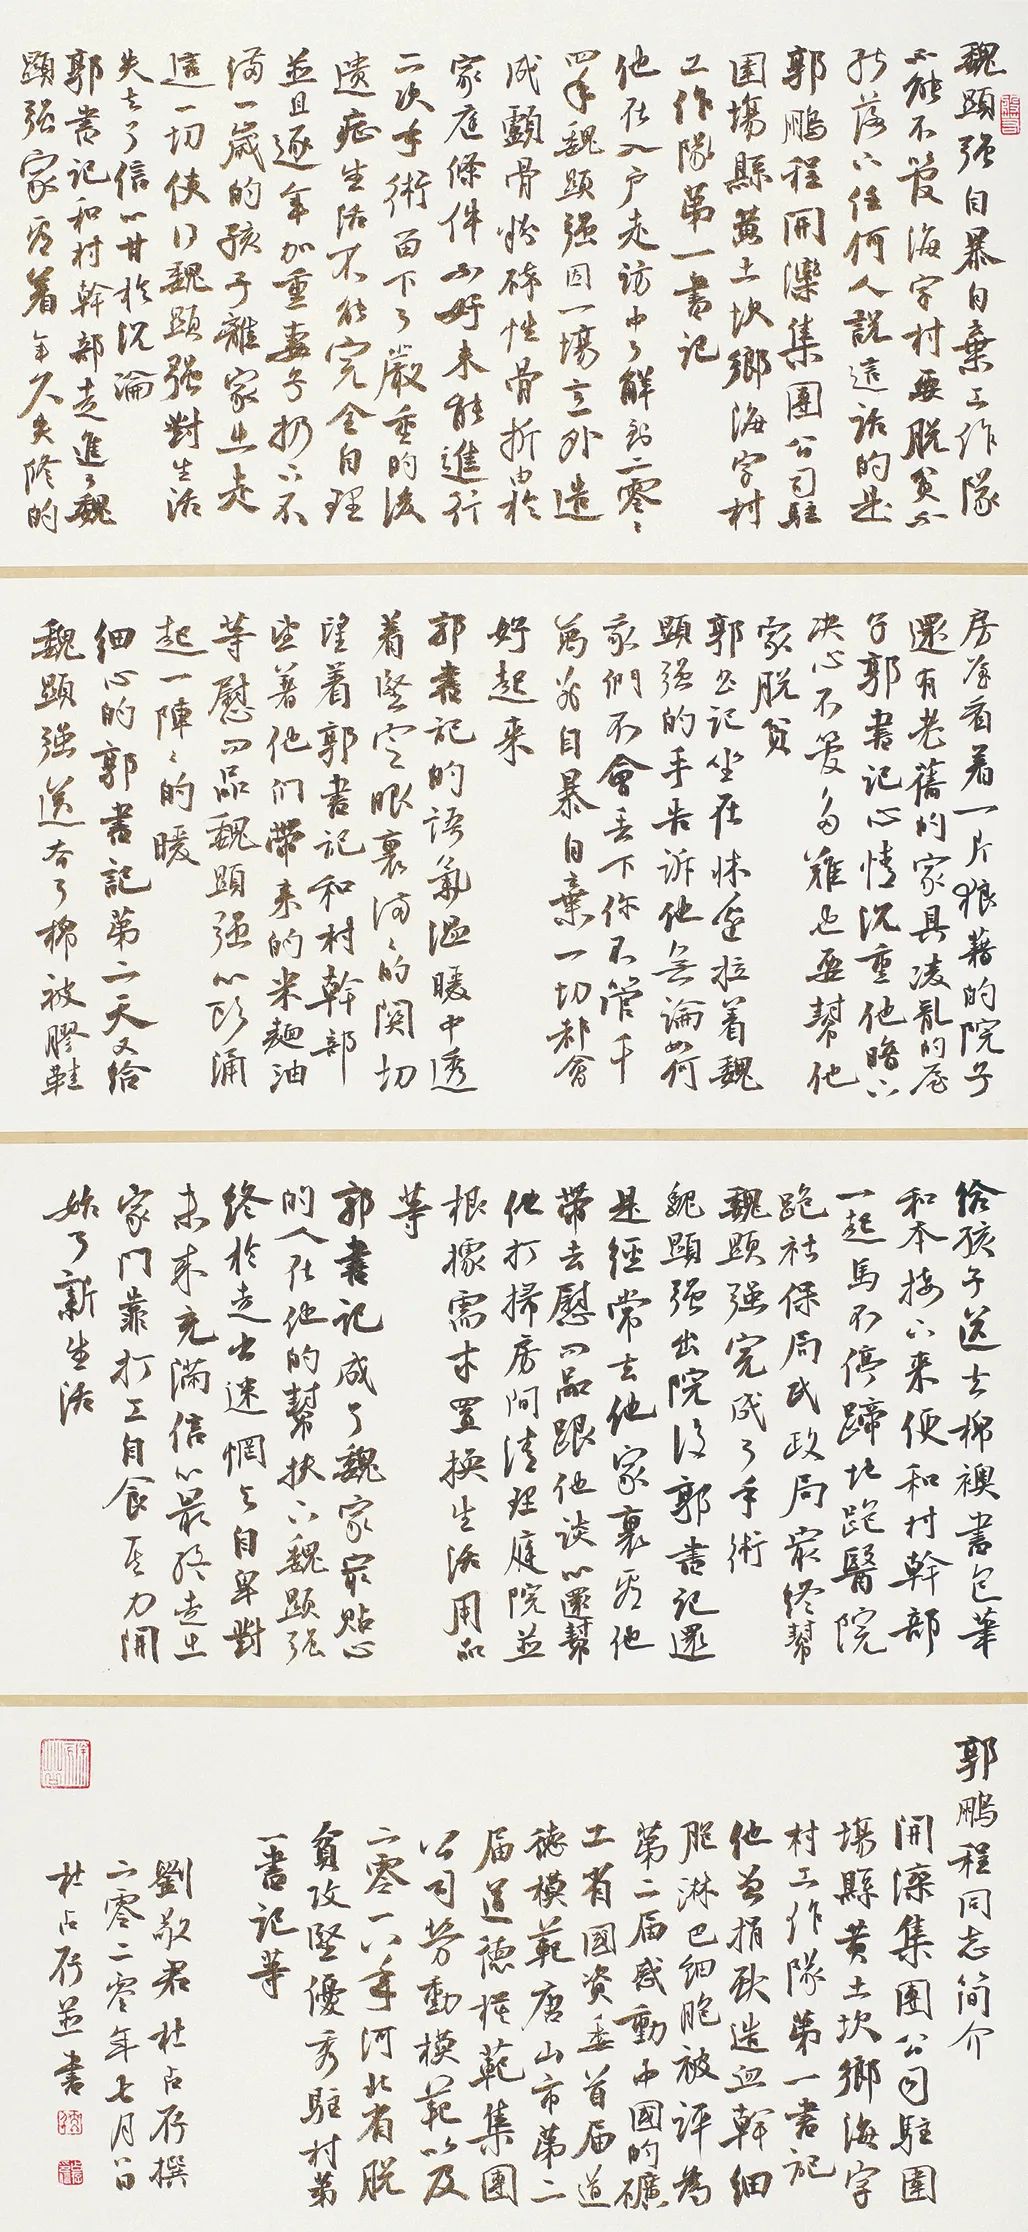 魏顯强自暴自棄工作隊
不能不管海字村要脱貧不
能落下任何人説這話的是
郭鵬程開灤集團公司駐
圍場縣黄土坎鄉海字村
工作隊第一書記
他在入户走訪中了解到二零零
四年魏顯强因一場意外造
成顴骨粉碎性骨折由於
家庭條件不好未能進行
二次手術留下了嚴重的後
遺症生活不能完全自理
並且逐年加重妻子扔下不
滿一歲的孩子離家出走
這一切使得魏顯强對生活
失去了信心甘於沉淪
郭書記和村幹部走進了魏
顯强家看着年久失修的
房屋看着一片狼藉的院子
還有老舊的家具凌亂的屋
子郭書記心情沉重他暗下
决心不管多難也要幫他
家脱貧
郭書記坐在牀邊拉着魏
顯强的手告訴他無論如何
我們不會丢下你不管千
萬别自暴自棄一切都會
好起来
郭書記的語氣温暖中透
着堅定眼裏滿滿的関切
望着郭書記和村幹部
望著他们帶来的米麵油
等慰问品魏顯强心頭涌
起一陣陣的暖
細心的郭書記第二天又給
魏顯强送去了棉被膠鞋
給孩子送去棉襖書包筆
和本接下来便和村幹部
一起馬不停蹄地跑醫院
跑社保局民政局最終幫
魏顯强完成了手術
魏顯强出院後郭書記還
是經常去他家裏看他
帶去慰问品跟他談心還幫
他打掃房间清理庭院並
根據需求置换生活用品
等
郭書記成了魏家最貼心
的人在他的幫扶下魏顯强
終於走出迷惘與自卑對
未来充滿信心最終走出
家門靠打工自食其力開
始了新生活
郭鵬程同志简介
開灤集團公司駐圍
場縣黄土坎鄉海字
村工作隊第一書記
他曾捐献造血幹細
胞淋巴细胞被評為
第二届感動中國的礦
工省國資委首届道
德模範唐山市第二
届道德模範集團
公司勞動模範以及
二零一八年河北省脱
貧攻堅優秀駐村第
一書記等
劉敬君杜占府撰
二零二零年七月八日
杜占府並書